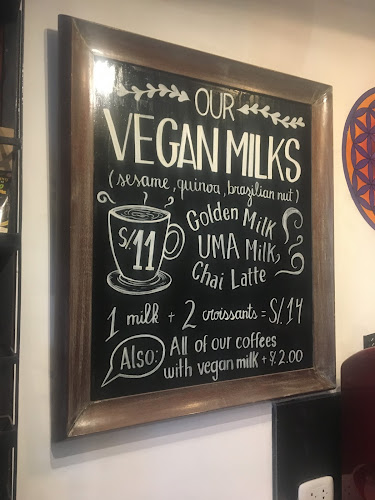 OUR
VEGAN MILKS
(sesame, quinoa, brazilian nut)
S/.11
Golden Milk
UMA Milk,
Chai Latte
1 milk + 2 croissants = S/.14
Also: All of our coffees
with vegan milk + S/.2.00